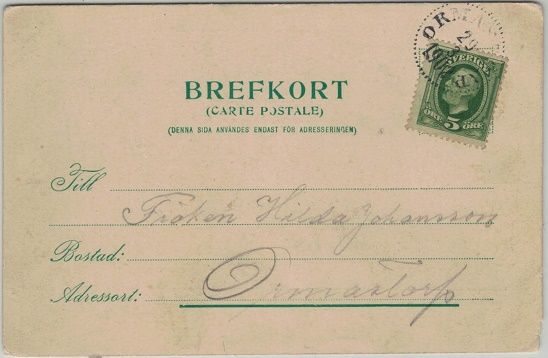 BREFKORT
(CARTE POSTALE)
(DENNA SIDA ANVÄNDES ENDAST FÖR ADRESSERINGEN)
SVERIGE
ÖRE 5 ÖRE
ORMA
29
Till Fröken Hilda Johansson
Bostad:
Adressort: Ormastorp